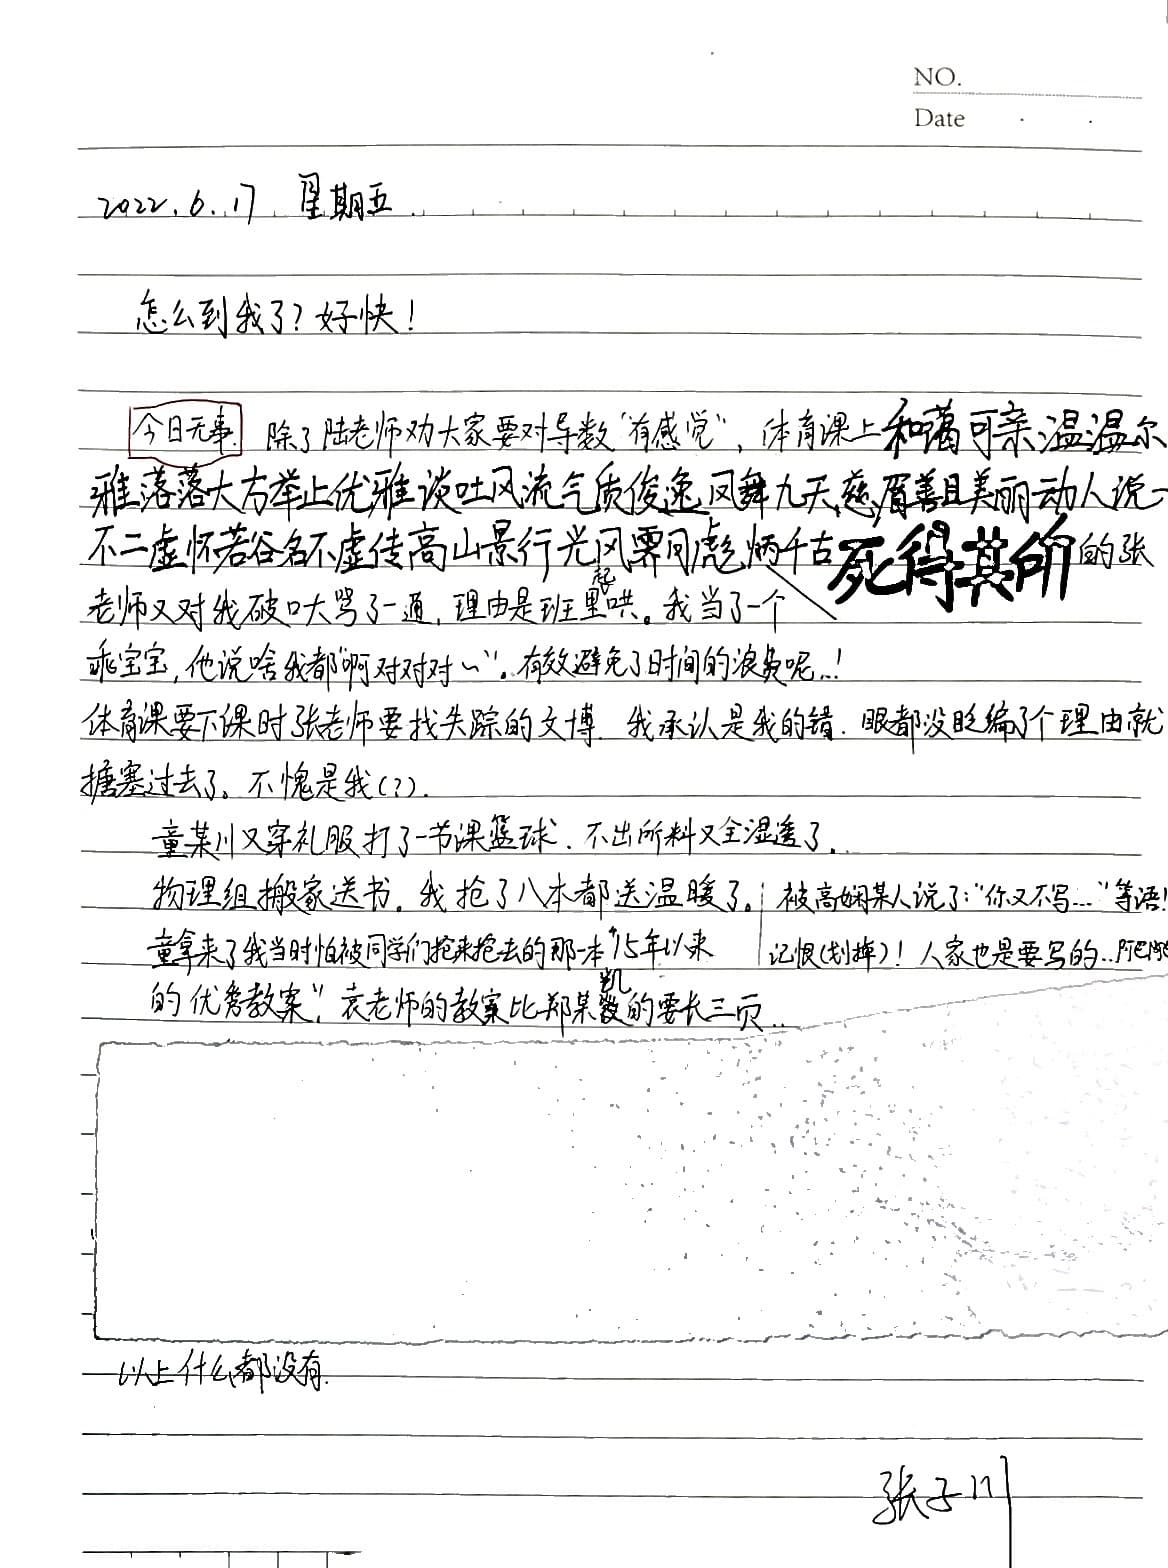 NO.
Date
2022.6.17 星期五
怎么到我了?好快!
今日无事. 除了陆老师劝大家要对导数"有感觉",体育课上和蔼可亲温温尔
雅落落大方举止优雅谈吐风流气质俊逸凤舞九天慈眉善目美丽动人说一
不二虚怀若谷名不虚传高山景行光风霁月彪炳千古死得其所的张
老师又对我破口大骂了一通,理由是班里起哄。我当了一个
乖宝宝,他说啥我都"啊对对对~"。有效避免了时间的浪费呢..!
体育课要下课时张老师要找失踪的文博.我承认是我的错.眼都没眨编了个理由就
搪塞过去了。不愧是我(?).
童某川又穿礼服打了一节课篮球.不出所料又全湿透了.
物理组搬家送书。我抢了八本都送温暖了。
童拿来了我当时怕被同学们抢来抢去的那一本"15年以来
的优秀教案",袁老师的教案比郑某凯的要长三页..
被高娴某人说了:"你又不写..."等语!
记恨(划掉)!人家也是要写的..
以上什么都没有.
张子川